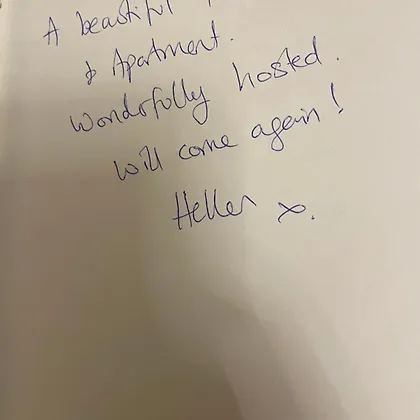 A beautiful
& Apartment.
Wonderfully hosted.
will come again!
Hellen x.